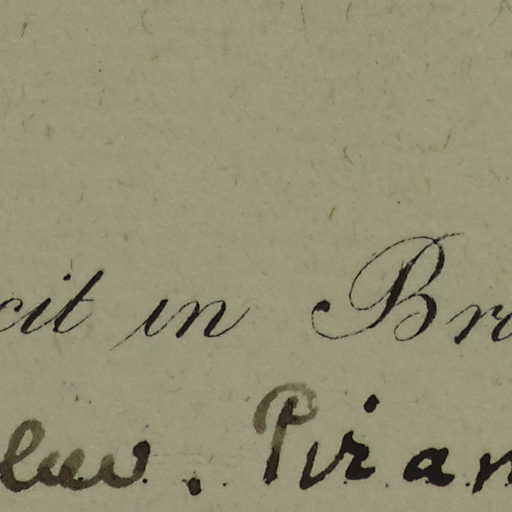 cit in Br
. Piran